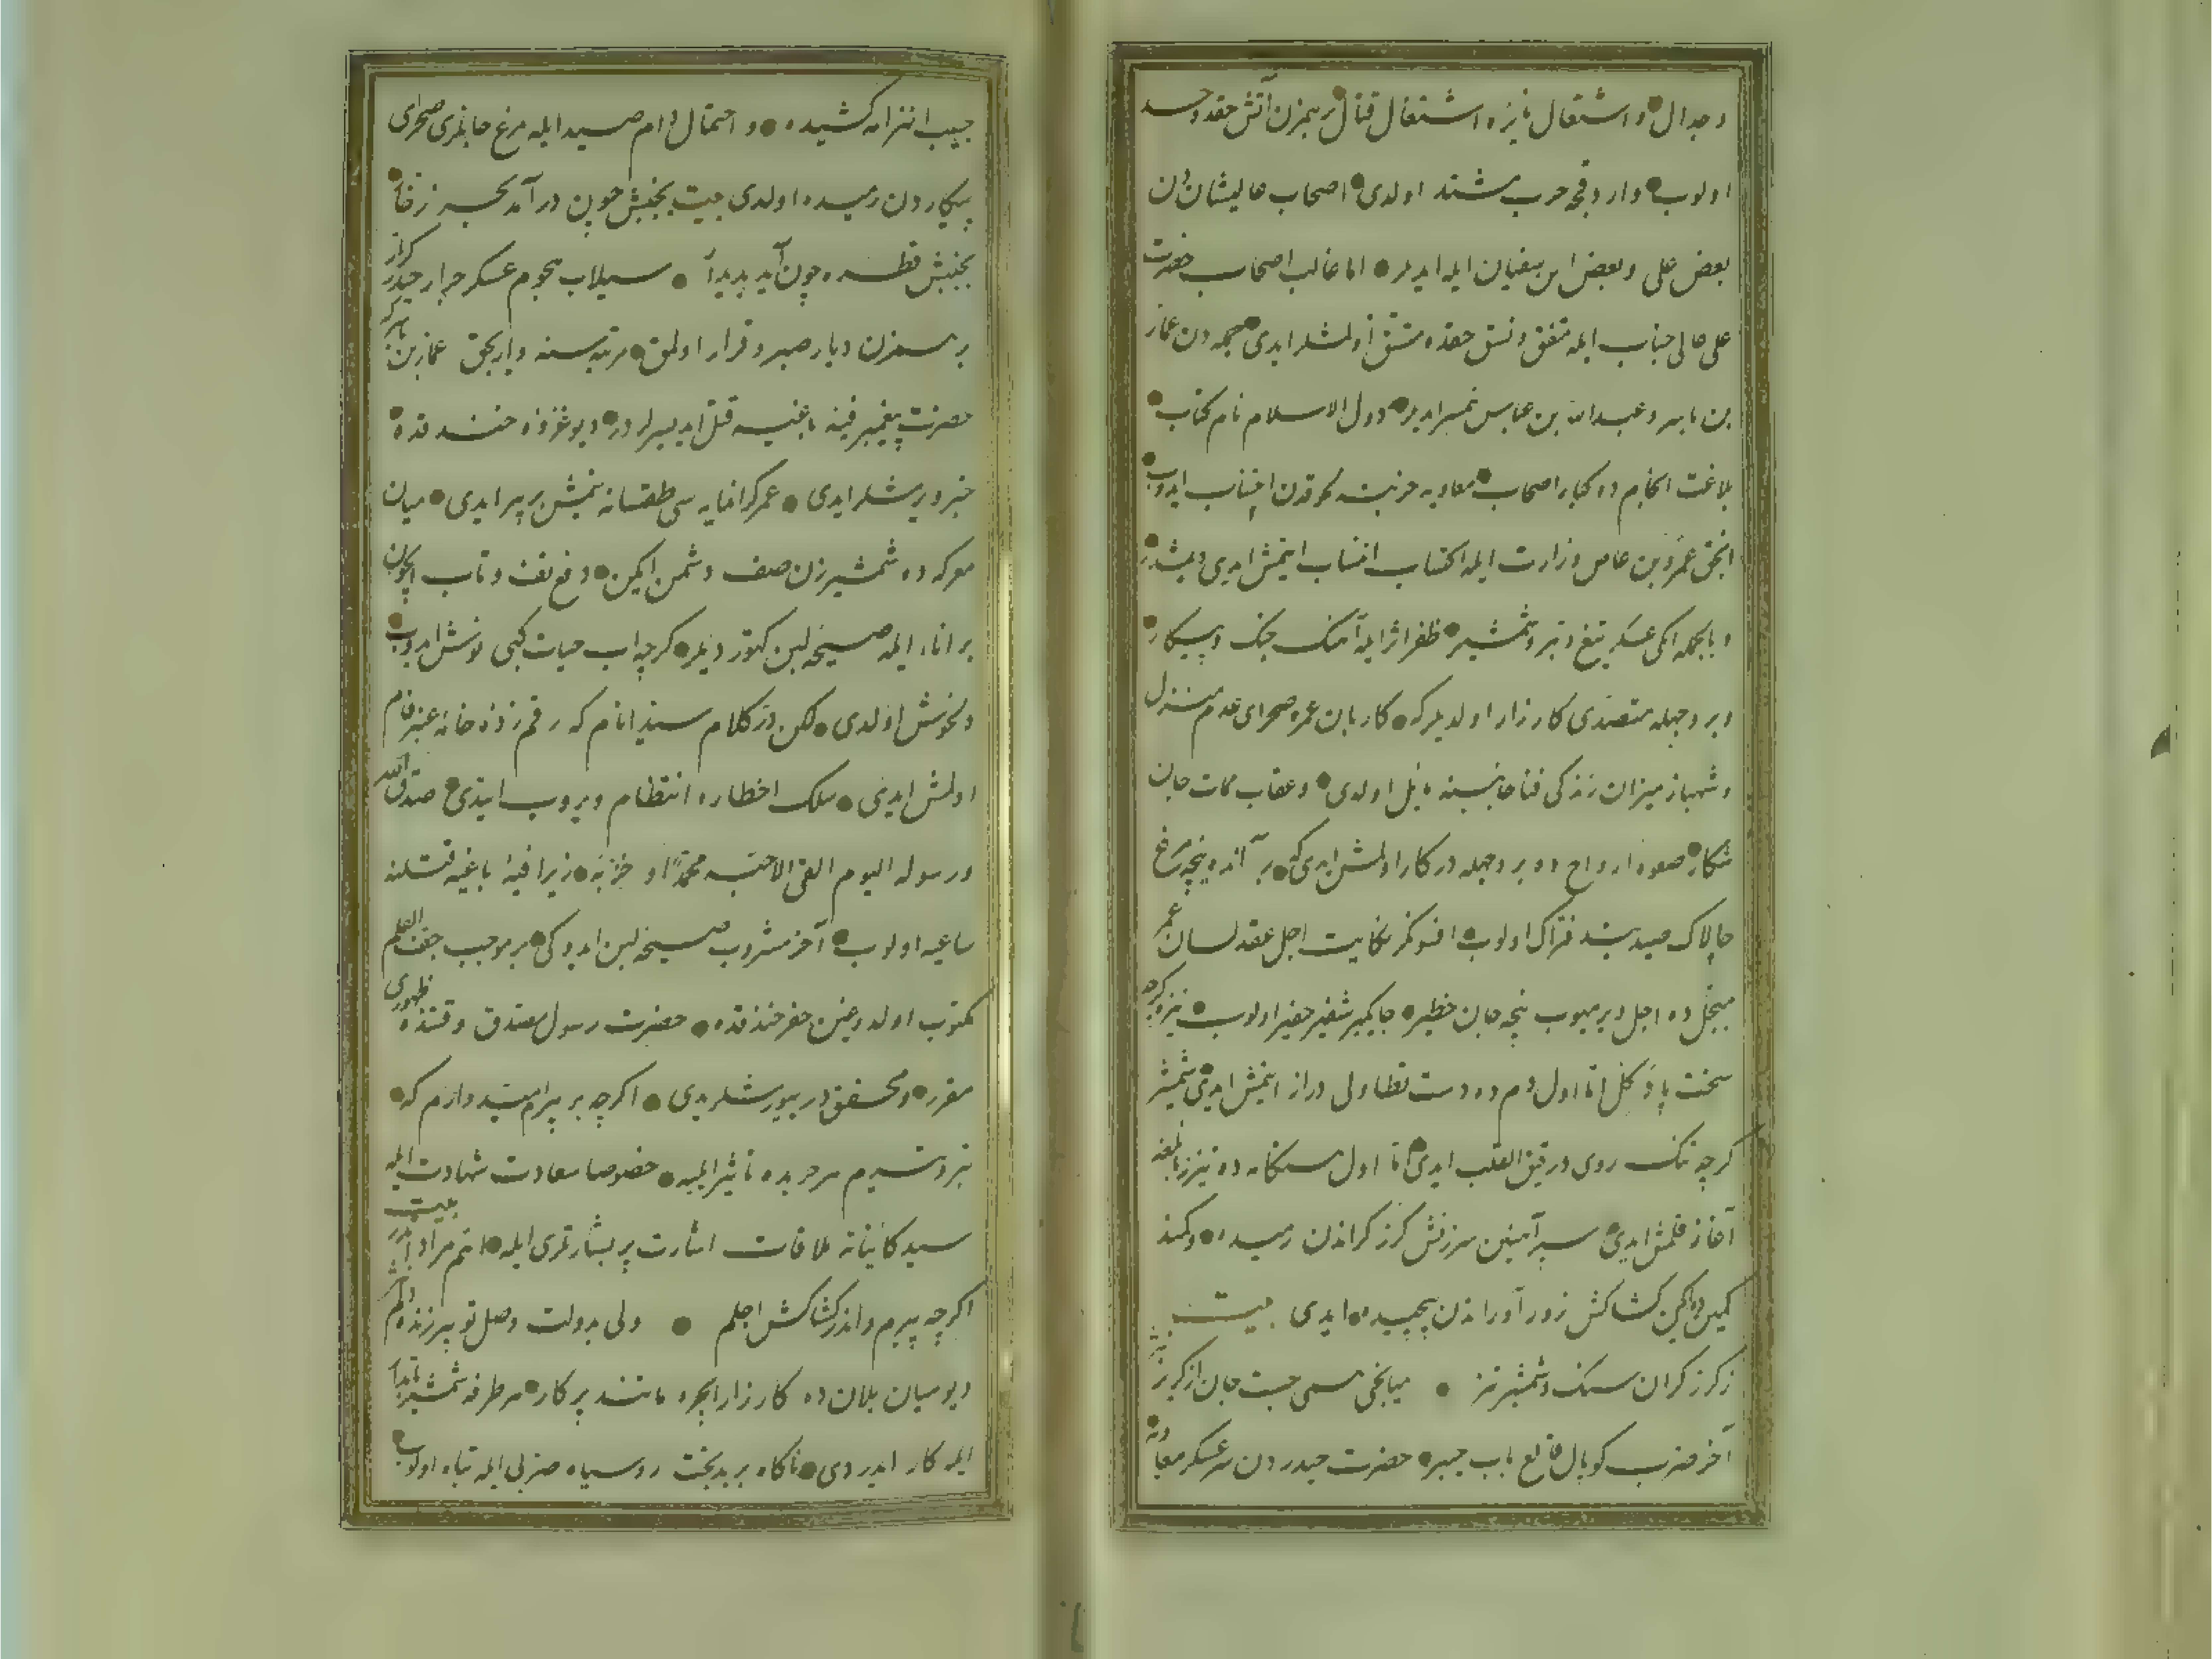 و جدال و اشتعال نایره اشتغال قتال برهمزن آتش حقد و حسد
اولوب و دار وقجه حرب مشتد اولدی اصحاب عالیشاندن
بعض علی و بعض ابن سفیان ایله ایدیلر اما غالب اصحاب حضرت
علی عالی جناب ایله متفق و نسق حقده متسق اولمشلر ایدی جمله دن عمار
بن یاسر و عبد الله بن عباس ایدیلر دول الاسلام نام کتاب
بلاغت انجام ده کبار اصحاب معاویه اجتناب ایدوب
انجق عمرو بن عاص وزارت ایله اکتساب انتساب ایتمش ایدی دیمشلر
و بالجمله ایکی عسکر تیغ و تبر و شمشیر ظفر اثر ایله آهنک جنک و پیکار
و بر وجهله متصدی کارزار اولدیلر که کاربان عمر صحرای عدم منزل
و شهباز میزان زندکی فنا جانبنه مایل اولدی و عقاب ممات جان
شکار صعوه ارواح ده بر وجهله در کار اولمش ایدی که بر آنده نیجه مرغ
چالاک صید بند فتراک اولوب افسونکر نکایت اجل عقد لسان عمر
اجل ویرمیوب نیجه جان خطیر جایکیر شفیر حفیر اولوب نیزه کرچه
سخت پا در کل اما اول دم ده دست تطاولی دراز ایتمش ایدی شمشیر
کرچه تنک روی و رقیق القلب ایدی اما اول هنکامه ده تیز زبانلغه
آغاز قلمش ایدی سپر آهنین سرزنش کرز کراندن رمیده و کمند
کمین کشاکش زور آوراندن پیچیده ایدی بیت
ز کرز کران سنک و شمشیر تیز میانجی همی جست جان از کریز
آخر ضرب کوپال قالع باب خیبر حضرت حیدر دن سر عسکر معاویه
جیب انزامه کشیده و احتمال دام صید ایله مرغ جانلری صحرای
پیکاردن رمیده اولدی بیت بجنبش چون درآمد بحر زخار
بجنبش قطره چون آید پدیدار سیلاب هجوم عسکر جرار حیدر کرار
بر همزن دیار صبر و قرار اولمق مرتبه سنه واریجق عمار بن یاسر که
حضرت پیغمبر فیه باغیه قتل ایدیسرلردر دیو غزوه خندقده
خبر ویرمشلر ایدی عمر کرانمایه سی طقسانه یتمش بر پیر ایدی میان
معرکه ده شمشیرزن صف دشمن ایکن دفع تف و تاب ایچون
بر اناء ایله صیحه لبن کتوردیلر کرچه اب حیات کبی نوش ایدوب
دلخوش اولدی لکن در کلام سید انام که رقم زده خامه عنبر فام
اولمش ایدی سلک اخطاره انتظام ویروب ایتدی صدق الله
و رسوله الیوم القی الاحبه محمدا و حزبه زیرا فیه باغیه قتلنه
ساعیه اولوب آخر مشروب صیحه لبن ایدوکی بر موجب جف القلم
مکتوب اولدوغین حفر خندقده حضرت رسول مصدق وقتنده ظهوری
مقرر و محقق در بیورمشلر ایدی اکرچه بر پیرم امید وارم که
تبر و تیرم هر حریده تاثیر ایلیه خصوصا سعادت شهادت ایله
سید کایناته ملاقات اشارت پر بشارتلری ایله اتم مراددر بیت
اکرچه پیرم و اندر کشاکش اجلم ولی بدولت وصل تو پیر زنده دلم
دیو میان یلان ده کارزار ایچره مانند پرکار هر طرفه شمشیر آبدار
ایله کار ایدردی ناکاه بر بدبخت روسیاه ضربی ایله تباه اولوب